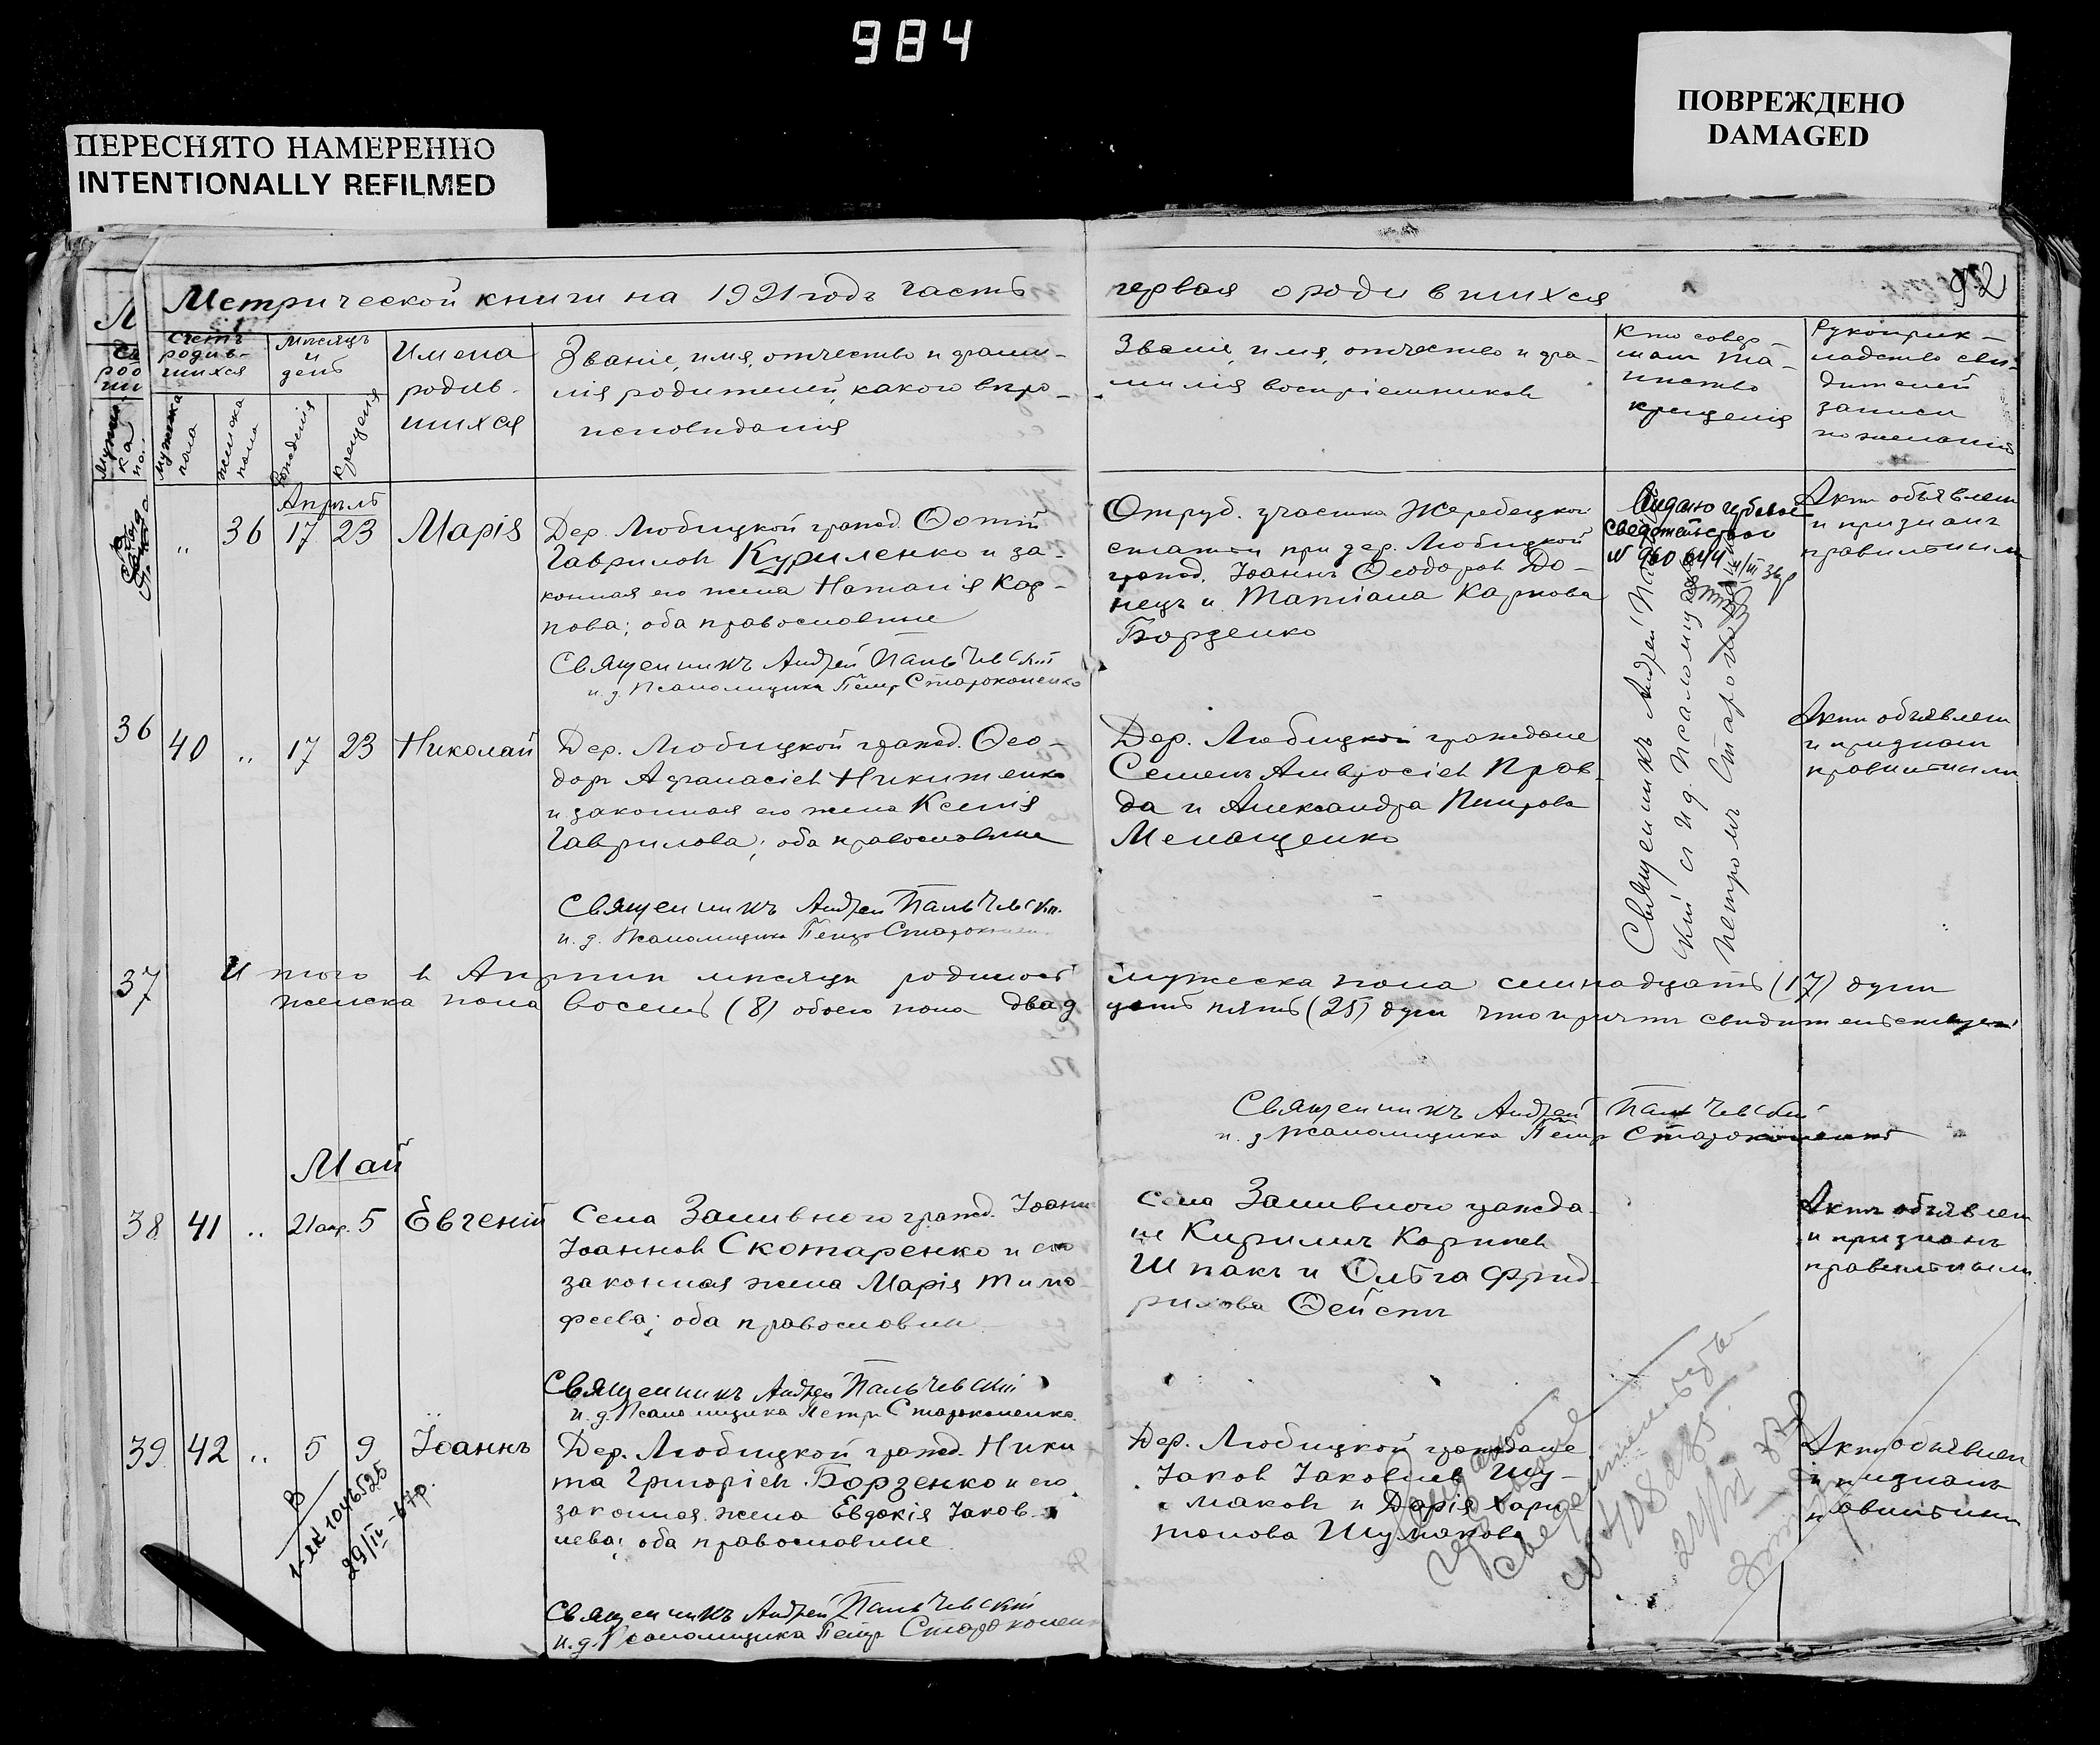 984
ПЕРЕСНЯТО НАМЕРЕННО
INTENTIONALLY REFILMED
ПОВРЕЖДЕНО
DAMAGED
92
Метрической книги на 1921 годъ часть первая о родившихся
Счетъ родив-
шихся
мужеска пола
женска пола
Мѣсяцъ
и
день
рожденія
крещенія
Имена
родив-
шихся
Званіе, имя, отчество и фами-
лія родителей, какого вѣро-
исповѣданія
Званіе, имя, отчество и фа-
милія воспріемниковъ
Кто совер-
шалъ та-
инство
крещенія
Рукоприк-
ладство сви-
дѣтелей
записи
по желанію
Апрѣль
" 36 17 23 Марія
Дер. Любицкой гражд. Ѳотій
Гавриловъ Куриленко и за-
конная его жена Наталія Кар-
пова; оба православные
Священникъ Андрей Пальчевскій
и. д. Псаломщика Петръ Староконенко
Отруб. участка Жеребецкой
при дер. Любицкой
гражд. Іоаннъ Ѳеодоровъ До-
нецъ и Татіана Карпова
Борзенко
Выдано
свидетельство
N 960
Актъ объявленъ
и признанъ
правильнымъ
Священникъ Андрей
кій съ и. д. псаломщика
Петромъ
36
40 " 17 23 Николай
Дер. Любицкой гражд. Ѳео-
доръ Афанасіев Никитенко
и законная его жена Ксенія
Гаврилова; оба православные
Священникъ Андрей Пальчевскій
и. д. Псаломщика Петръ
Дер. Любицкой граждане
Семенъ Амвросіев Прав-
да и Александра Петрова
Менащенко
Актъ объявленъ
и признанъ
правильнымъ
37
Итого в Апрѣлѣ мѣсяцѣ родилось мужеска пола семнадцать (17) душ
женска пола восемь (8) обоего пола двад цать пять (25) душ что причтъ
Священникъ Андрей Пальчевскій
и. д. псаломщика Петръ Староконенко
Май
38 41 " 21 апр. 5 Евгеній
Села Заливного гражд. Іоаннъ
Іоаннов Скотаренко и его
законная жена Марія Тимо-
феева; оба православные
Священникъ Андрей Пальчевскій
и. д. Псаломщика Петръ Староконенко
Села Заливного гражда-
не Кириллъ Корнеев
Шпакъ и Ольга Фрид-
рихова Ѳейстъ
Актъ объявленъ
и признанъ
правильнымъ
39 42 " 5 9 Іоаннъ
1046525
29/IV-67р.
Дер. Любицкой гражд. Ники-
та Григоріев Борзенко и его
законная жена Евдокія Яков-
лева; оба православные
Священникъ Андрей Пальчевскій
и. д. Псаломщика Петръ Староконенко
Дер. Любицкой граждане
Іаков Іаковлев Шу-
маков и Дарія Хари-
тонова Шумакова
Актъ объявленъ
и признанъ